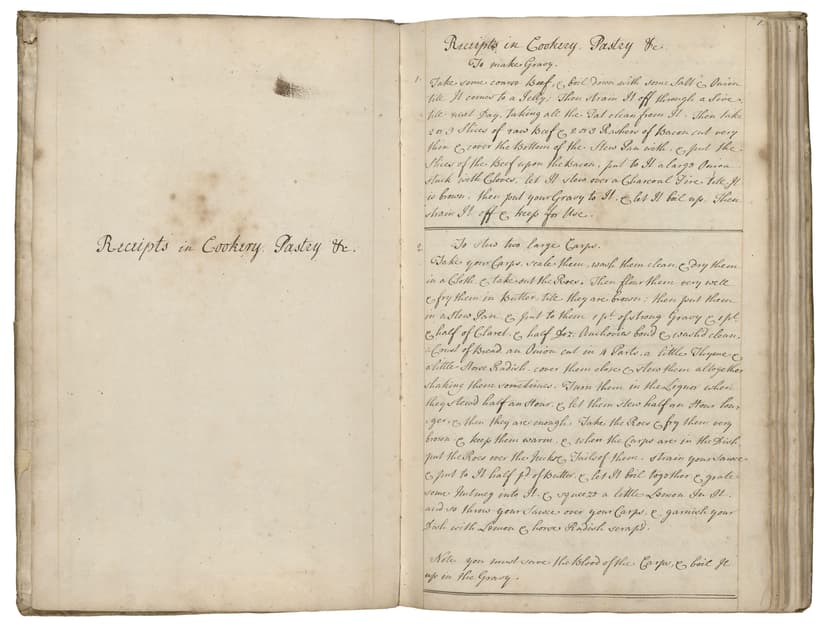 Receipts in Cookery, Pastry &c.
1
Receipts in Cookery, Pastry &c
To make Gravy.
1. Take some coarse Beef, & boil down with some Salt & Onion
till It comes to a Jelly; Then strain It off through a Sive,
till next Day, taking all the Fat clean from It. Then take
2 or 3 Slices of raw Beef & 2 or 3 Rashers of Bacon cut very
thin & cover the Bottom of the Stew Pan with, & put the
Slices of the Beef upon the Bacon, put to It a large Onion
stuck with Cloves, let It stew over a Charcoal Fire till It
is brown, then put your Gravy to It, & let It boil up. Then
strain It off & keep for Use.
2. To stew two large Carps.
Take your Carps, scale them, wash them clean, & dry them
in a Cloth, & take out the Roes. Then flour them very well
& fry them in Butter till they are brown; then put them
in a Stew Pan, & put to them 1 pt. of strong Gravy & 1 pt
& half of Claret, & half Doz: Anchovies bon'd & wash'd clean,
a Crust of Bread, an Onion cut in 4 Parts, a little Thyme &
a little Horse Radish, cover them close & stew them altogether
shaking them sometimes. Turn them in the Liquor when
they stew'd half an Hour, & let them stew half an Hour lon-
ger, & then they are enough. Take the Roes & fry them very
brown & keep them warm, & when the Carps are in the Dish
put the Roes over the Necks & Tails of them, strain your Sauce
& put to It half pd. of Butter, & let It boil together & grate
some Nutmeg into It, & squeeze a little Lemon In It,
and so throw your Sauce over your Carps, & garnish your
Dish with Lemon & horse Radish scrap'd.
Note you must save the Blood of the Carps, & boil It
up in the Gravy.